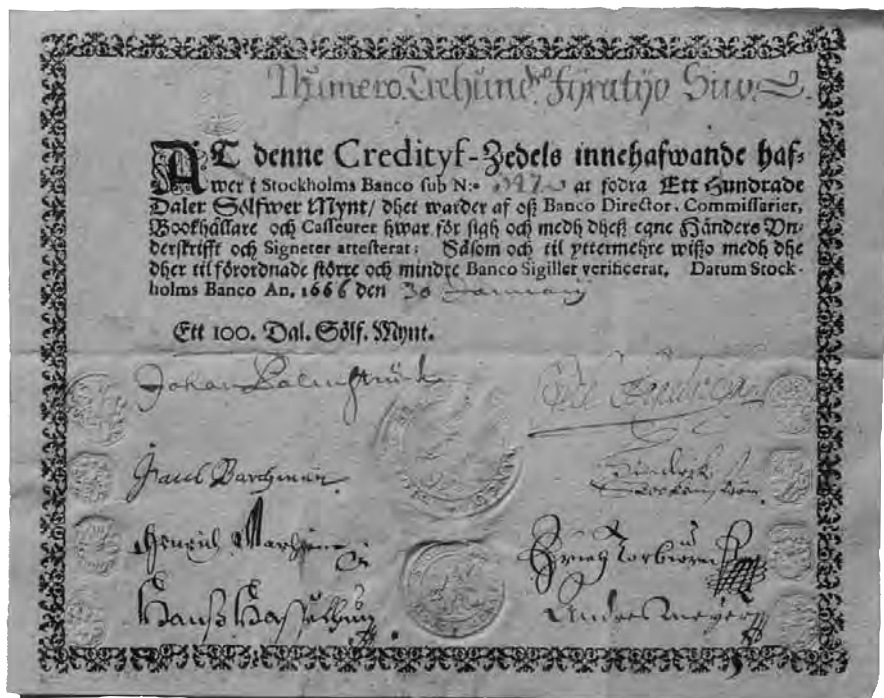 Numero. Trehund. Fÿratijo Siuv.
At denne Credityf-Zedels innehafwande haf-
wer i Stockholms Banco sub N:o 347 at fodra Ett Hundrade
Daler Sölfwer Mynt/ dhet warder af oß Banco Director, Commissarier,
Bookhållare och Casseurer hwar för sigh och medh dheß egne Händers Vn-
derskrifft och Signeter attesterat; Såsom och til yttermehre wißo medh dhe
dher til förordnade större och mindre Banco Sigiller verificerat, Datum Stock-
holms Banco An. 1666 den 30 Januarij
Ett 100. Dal. Sölf. Mynt.
Johan Palmstruch
Paul Barchman
Hindrich
Henrich
Hanß
Anders Meyer